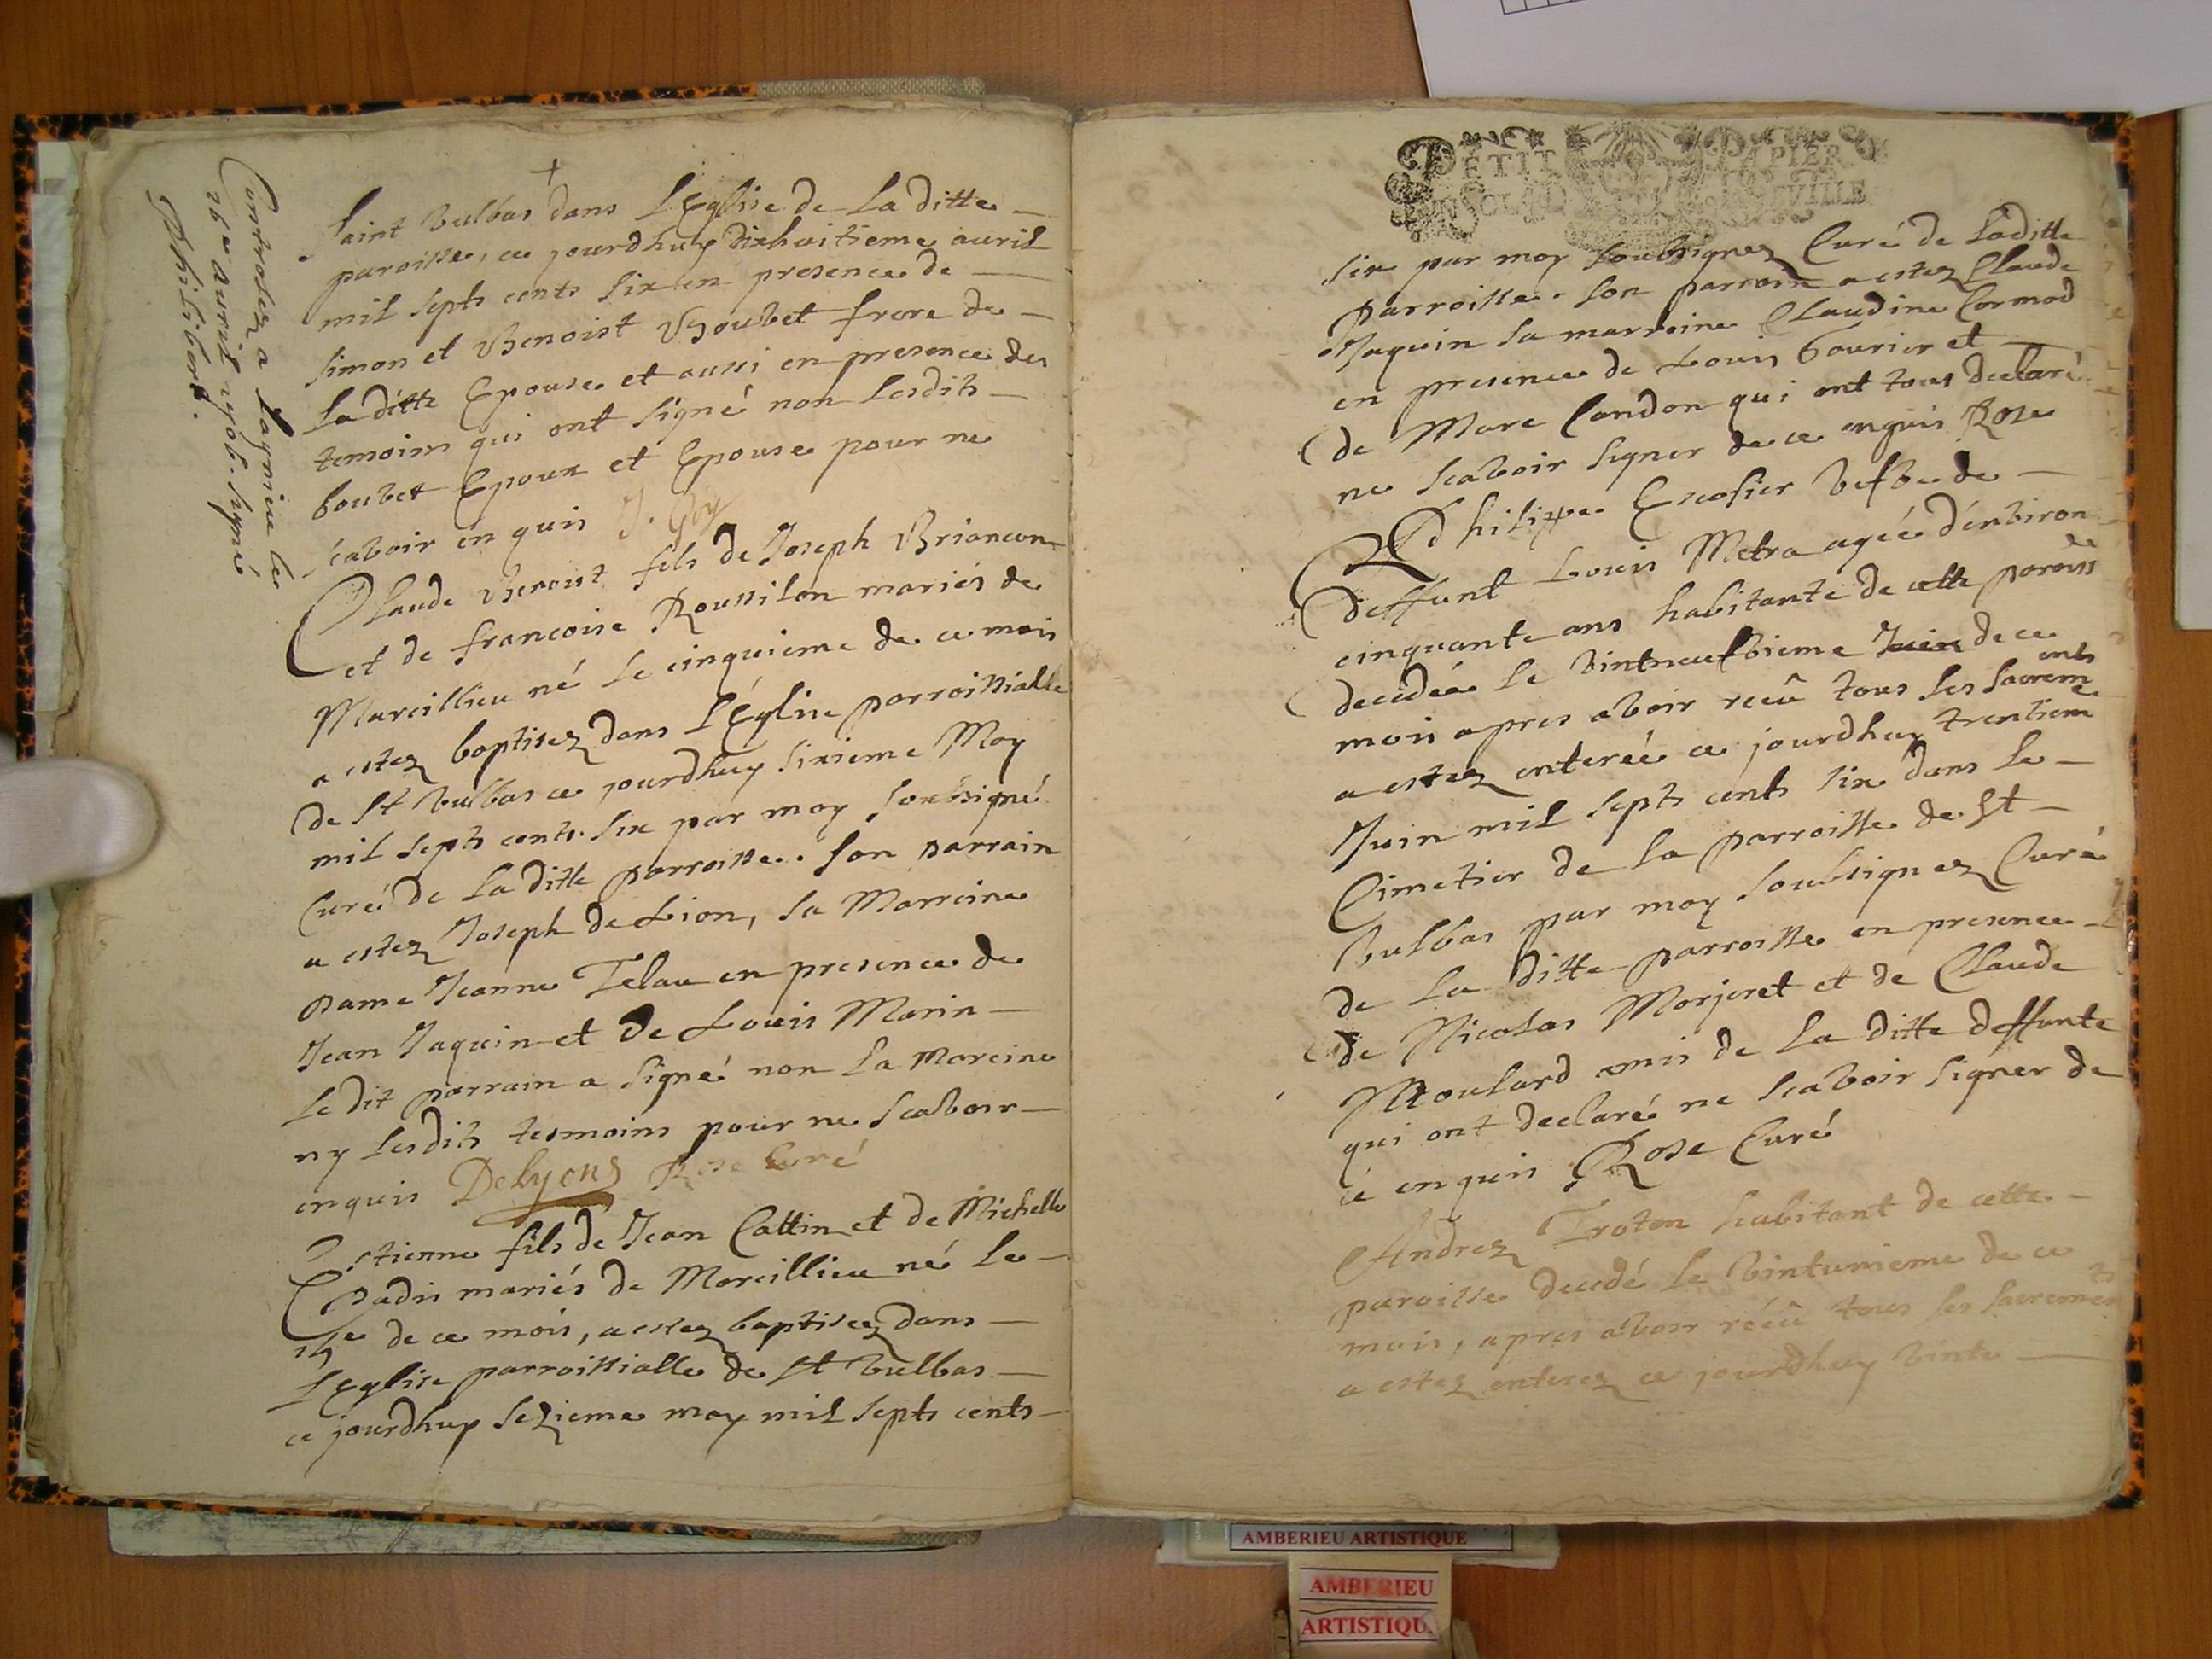 Controlez a Lagnieu le
26e avril 1706. signé
Philibert.
saint vulbas dans L'Eglise de La ditte
paroisse, ce jourdhuy dixhuitieme avril
mil septs cents six en presence de
simon et Benoist Boubet frere de
La ditte Epouse et aussi en presence des
temoins qui ont signé non Lesdits
boubet Epoux et Epouse pour ne
scavoir en quis J. Goy
Claude Benoist fils de Joseph Briancon
et de francoise Roussilon mariés de
Marcillieu né le cinquieme de ce mois
a estez baptisez dans L'Eglise parroissialle
de St vulbas ce jourdhuy sixieme May
mil septs cents six par moy soubsigné
Curé de La ditte parroisse. Son parrain
a estez Joseph de Lion, sa Marreine
Dame Jeanne Telau en presence de
Jean Jaquin et de Louis Marin
Le dit parrain a signé non La Mareine
ny Lesdits tesmoins pour ne scavoir
enquis Delyons Rose Curé
Estienne fils de Jean Cattin et de Michelle
Padis mariés de Marcillieu né le
15e de ce mois, a estez baptisez dans
L'Eglise parroissialle de St vulbas
ce jourdhuy sezieme may mil septs cents
PETIT PAPIER
six par moy soubsignez Curé de Laditte
Parroisse. Son parrain a estez Claude
Jaquin sa marreine Claudine Cormod
en presence de Louis Gourier et
de Marc Candon qui ont tous declaré
ne scavoir signer de ce enquis Rose
Philippe Escofier vefve de
deffunt Louis Metra agée d'environ
cinquante ans habitante de cette paroisse
decedée le vintneufvieme Juin de ce
mois apres avoir reçû tous les Sacrements
a estez enterée ce jourdhuy trentieme
Juin mil septs cents six dans le
Cimetier de La parroisse de St
Vulbas par moy soubsignez Curé
de La ditte parroisse en presence
de Nicolas Morjeret et de Claude
Moulard amis de La ditte deffunte
qui ont declaré ne scavoir signer de
ce enquis Rose Curé
Andrez Troton habitant de cette
paroisse decedé le vintunieme de ce
mois, apres avoir réçû tous les sacrements
a estez enterez ce jourdhuy vinte
AMBERIEU ARTISTIQUE
AMBERIEU
ARTISTIQU